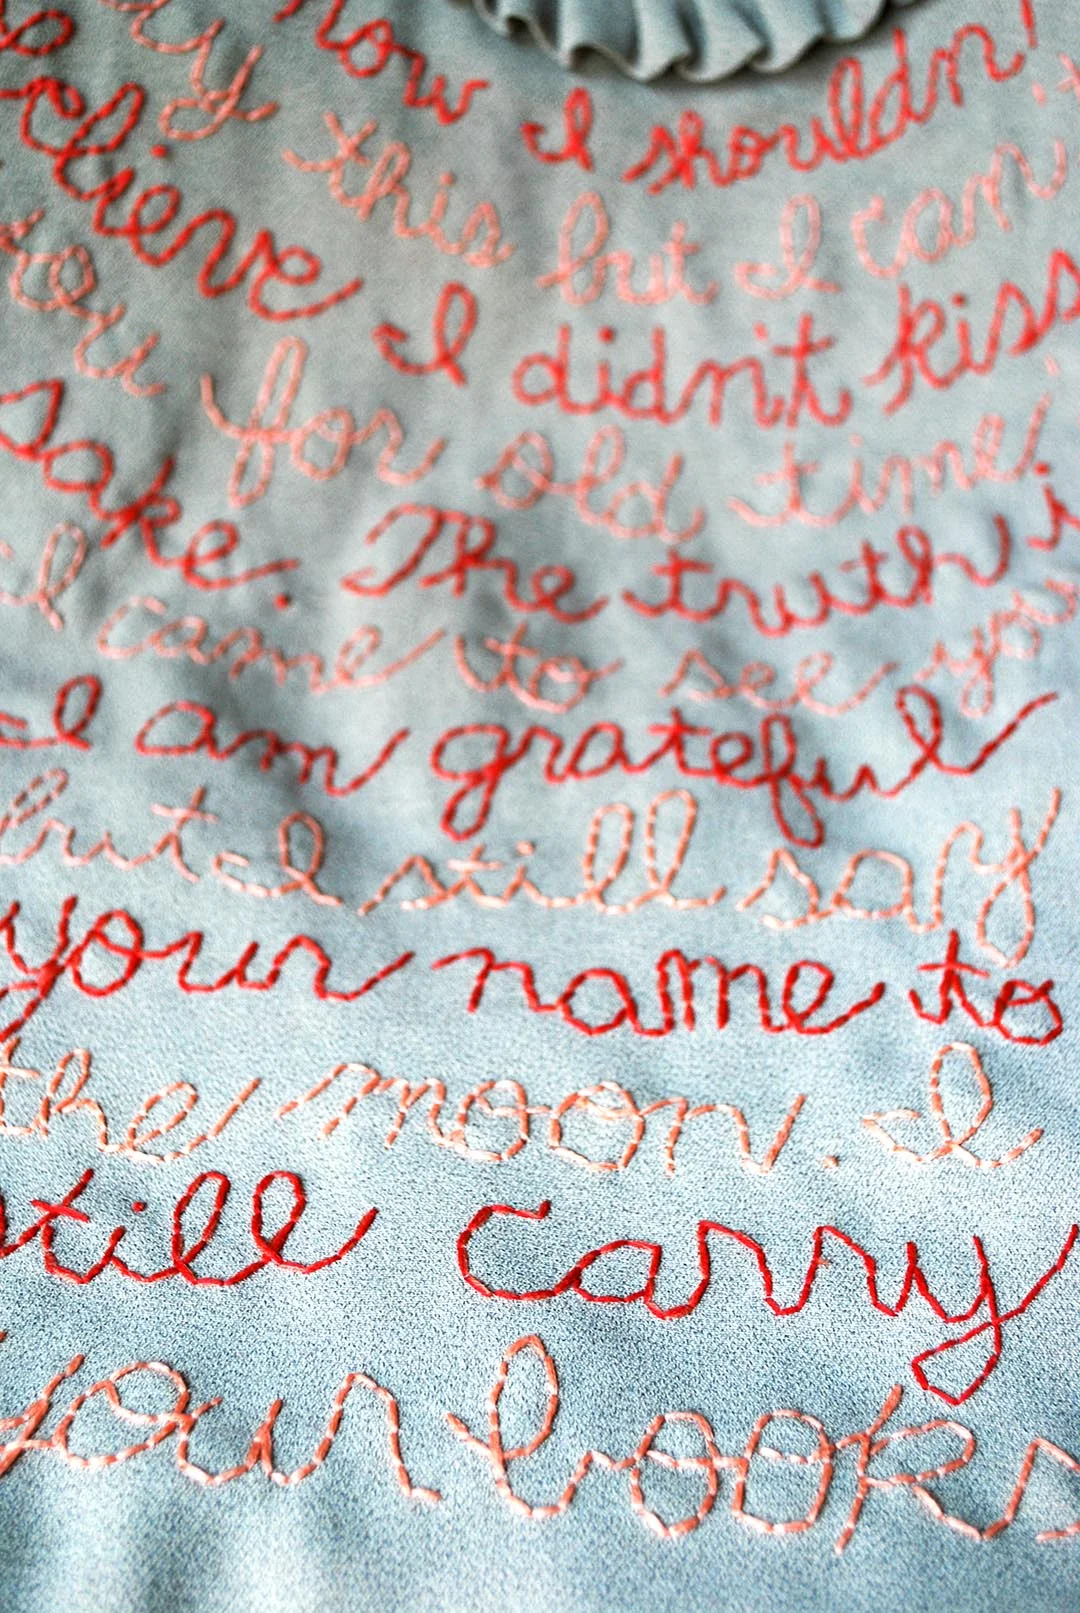 now I shouldn'
this but I can
I didn't kiss
you for old time
sake. The truth i
I came to see you
I am grateful
but I still say
your name to
the moon. I
still carry
your books